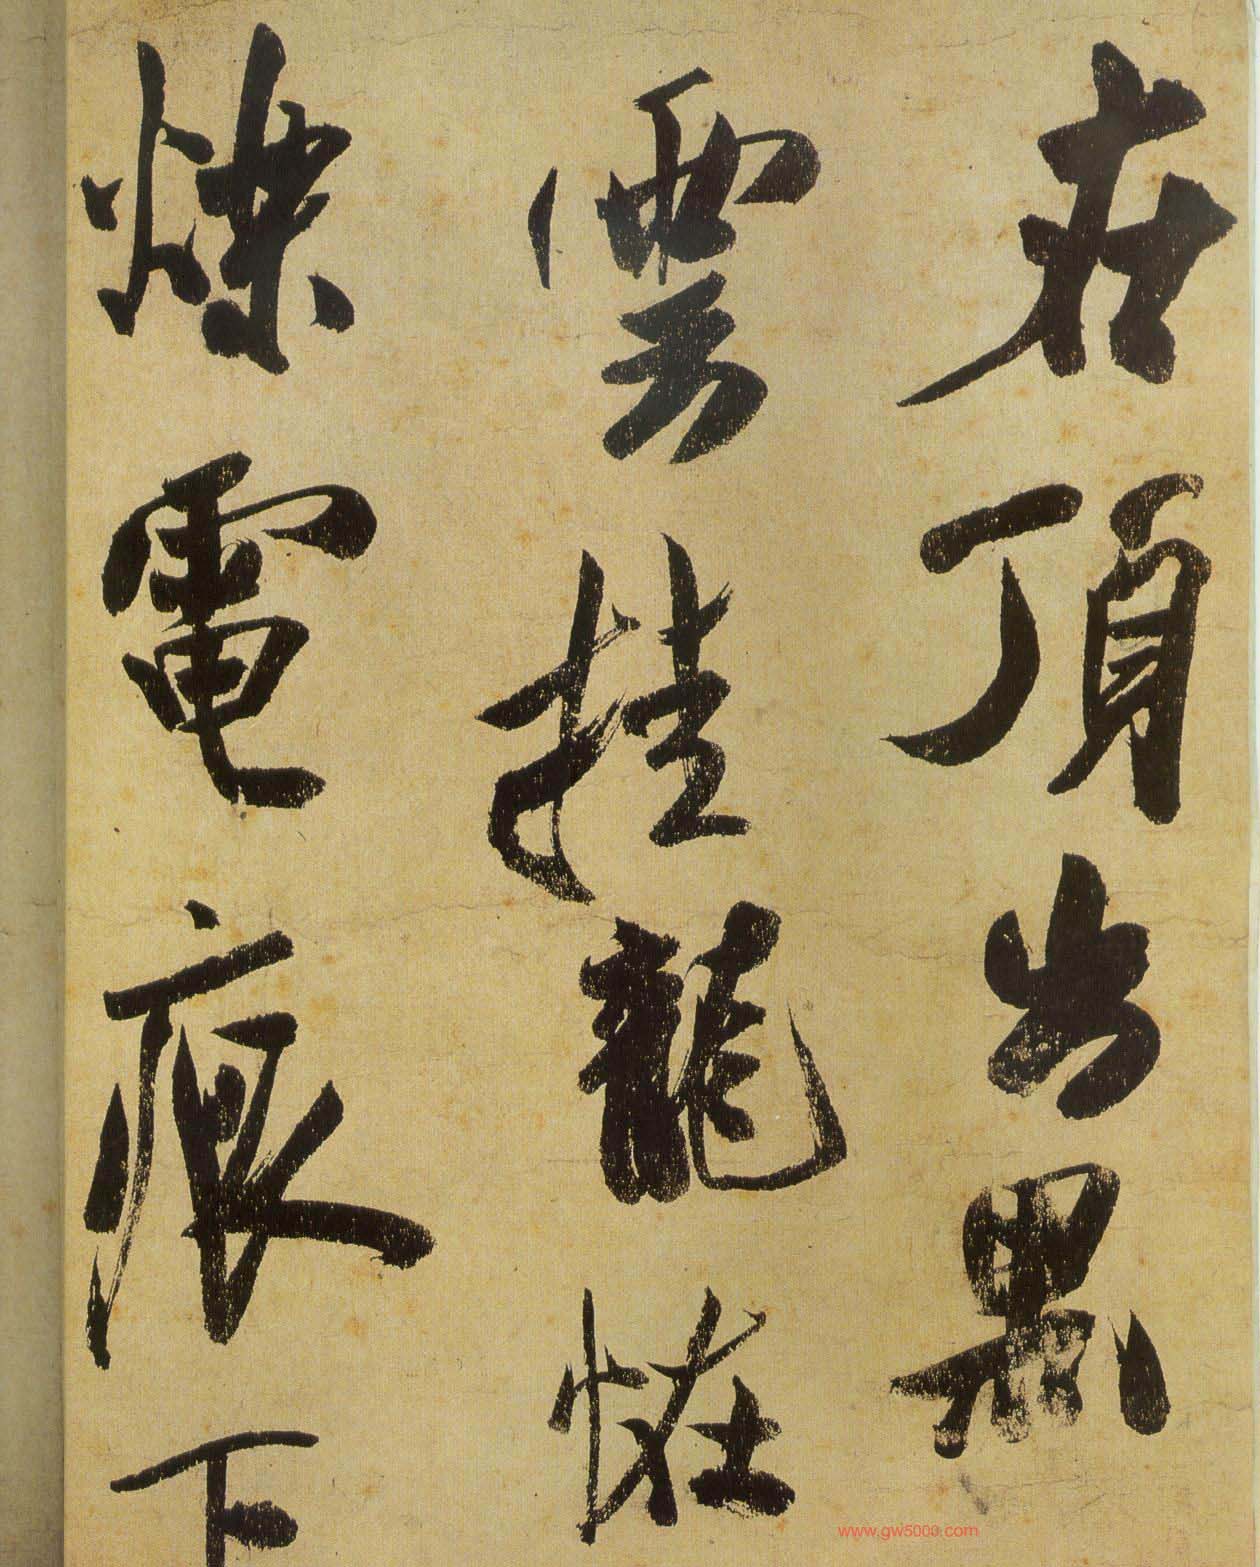 在頂出黑
雲挂龍恠
爍電痕下
www.gw5000.com